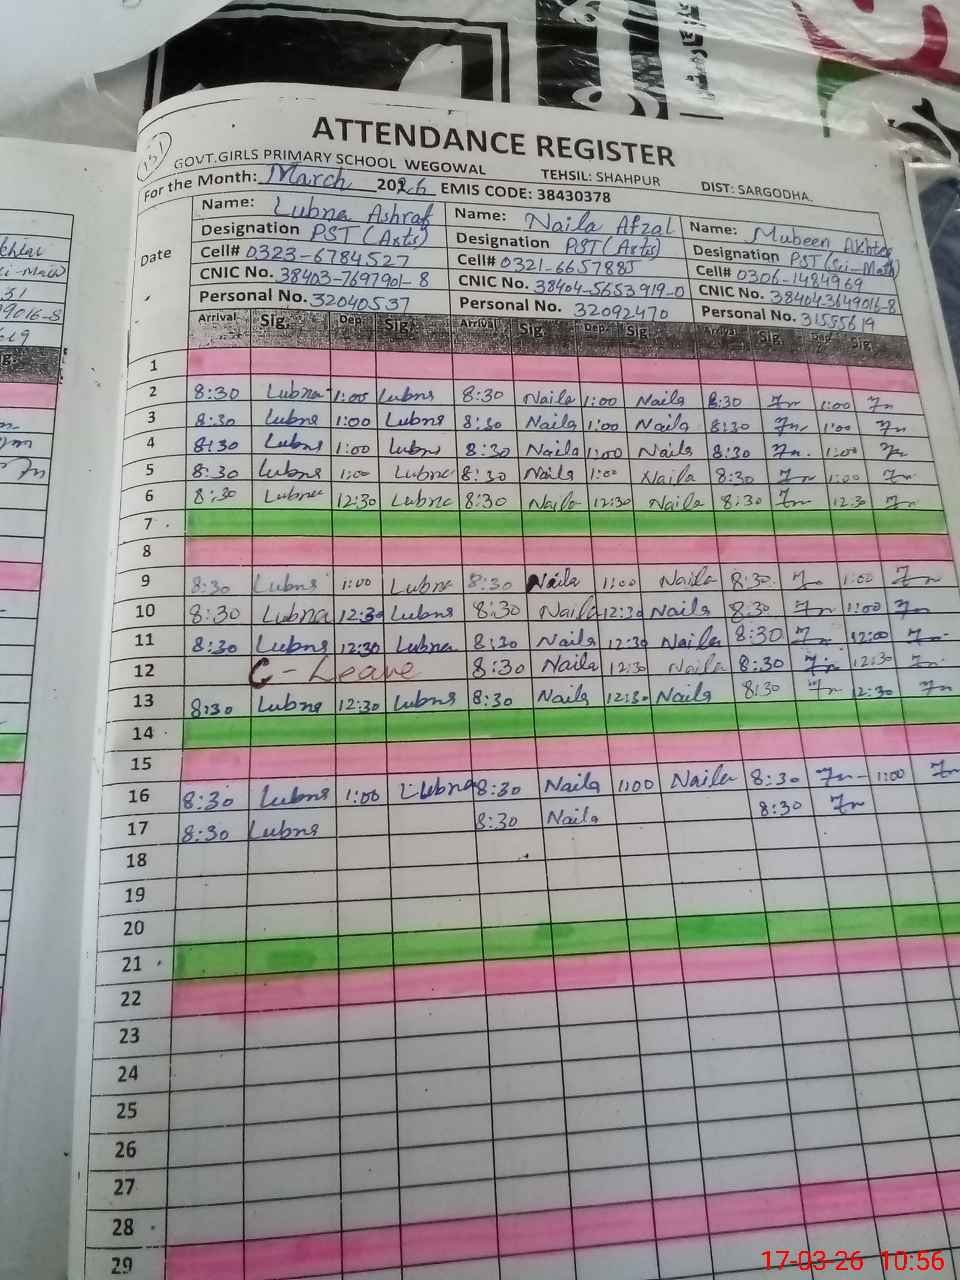 151
ATTENDANCE REGISTER
GOVT.GIRLS PRIMARY SCHOOL WEGOWAL TEHSIL: SHAHPUR DIST: SARGODHA.
For the Month: March 2026 EMIS CODE: 38430378
Date
Name: Lubna Ashraf Name: Naila Afzal Name: Mubeen Akhter
Designation PST (Arts) Designation PST (Arts) Designation PST (Sci-Math)
Cell# 0323-6784527 Cell# 0321-6657885 Cell# 0306-1484969
CNIC No. 38403-7697901-8 CNIC No. 38404-5653919-0 CNIC No. 38404-3649016-8
Personal No. 32040537 Personal No. 32092470 Personal No. 31555619
Arrival Sig. Dep. Sig. Arrival Sig. Dep. Sig. Arrival Sig. Dep. Sig.
1
2 8:30 Lubna 1:00 Lubna 8:30 Naila 1:00 Naila 8:30 1:00
3 8:30 Lubna 1:00 Lubna 8:30 Naila 1:00 Naila 8:30 1:00
4 8:30 Lubna 1:00 Lubna 8:30 Naila 1:00 Naila 8:30 1:00
5 8:30 Lubna 1:00 Lubna 8:30 Naila 1:00 Naila 8:30 1:00
6 8:30 Lubna 12:30 Lubna 8:30 Naila 12:30 Naila 8:30 12:30
7
8
9 8:30 Lubna 1:00 Lubna 8:30 Naila 1:00 Naila 8:30 1:00
10 8:30 Lubna 12:30 Lubna 8:30 Naila 12:30 Naila 8:30 1:00
11 8:30 Lubna 12:30 Lubna 8:30 Naila 12:30 Naila 8:30 12:00
12 C-Leave 8:30 Naila 12:30 Naila 8:30 12:30
13 8:30 Lubna 12:30 Lubna 8:30 Naila 12:30 Naila 8:30 12:30
14
15
16 8:30 Lubna 1:00 Lubna 8:30 Naila 1:00 Naila 8:30 1:00
17 8:30 Lubna 8:30 Naila 8:30
18
19
20
21
22
23
24
25
26
27
28
29
17-03-26 10:56